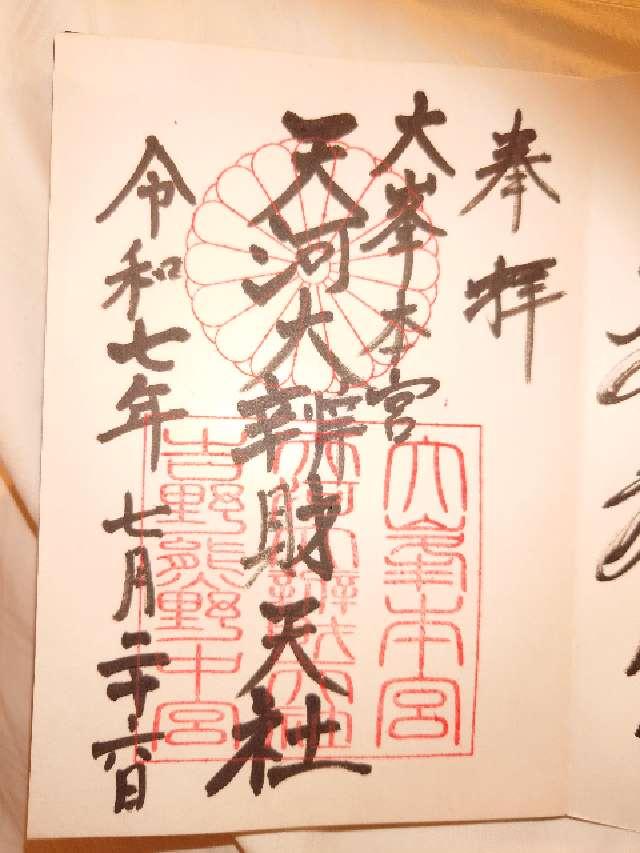 奉拝
大峯本宮
天河大辨財天社
令和七年 七月二十六日
大峯本宮
天河大辨財天社
吉野熊野中宮